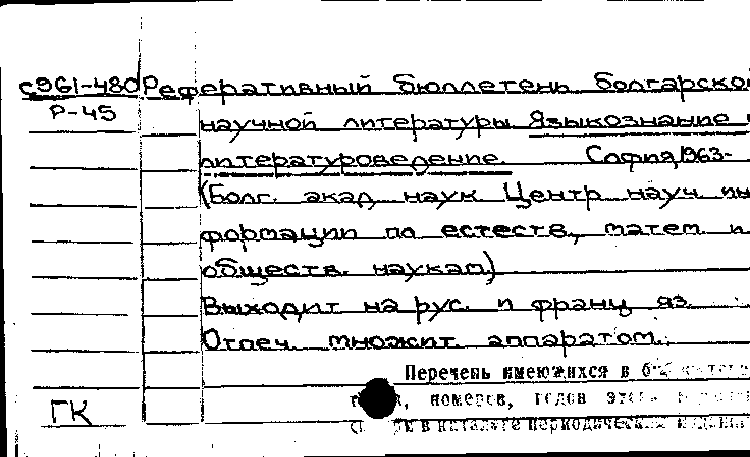 с961-480 Реферативный бюллетень болгарской
Р-45
научной литературы Языкознание и
литературоведение. София, 1963-
(Болг. акад. наук. Центр науч. ин
формации по естеств., матем. и
обществ. наукам)
Выходит на рус. и франц. яз.
Отпеч. множит. аппаратом.
Перечень имеющихся в
номеров, годов
ГК
в каталоге периодических